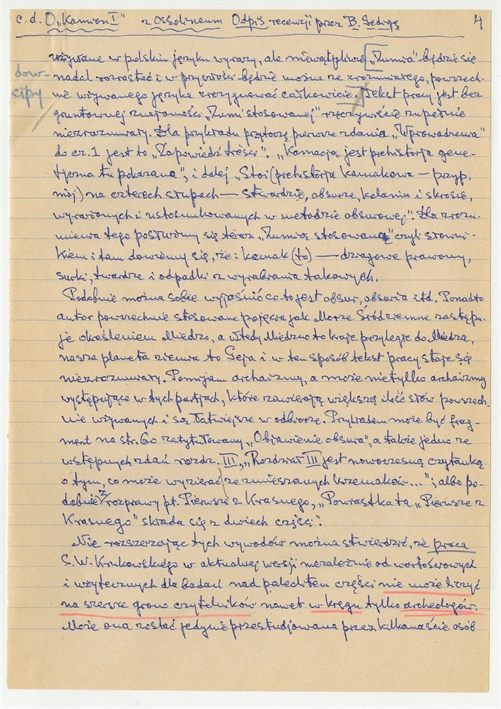 c.d. O „Kamion I" z Ossolineum Odpis recenzji przez B. Jedrys 4
używane w polskim języku wyrazy, ale niewątpliwie „Żumia" będzie się
dow-
cipy
nadal rozrastać i w przyszłości będzie można ze zrozumiałego, powszech-
nie używanego języka zrezygnować całkowicie. Tekst pracy jest bez
gruntownej znajomości „Żumi stosowanej" rzeczywiście zupełnie
niezrozumiały. Dla przykładu przytoczę pierwsze zdania „Wprowadzenia"
do cz. 1 jest to „Zapowiedź treści". „Kamacja jest prehistorja gene-
tyczna tu pokazana", i dalej „Stoi (prehistorja kamakowa — przyp.
mój) na czterech słupach — stwardzie, obsurze, kalanin i skrosie,
wyróżnionych i ustosunkowanych w metodzie obsurowej". Dla zrozu-
mienia tego posłużmy się teraz „Żumią stosowaną" czyli słowni-
kiem i tam dowiemy się, że: kamak (to) — dziagowe prawony,
surki, twardze i odpadki z wyrabiania takowych.
Podobnie można sobie wyjaśnić co to jest obsur, obsuria itd. Ponadto
autor powszechnie stosowane pojęcia jak Morze Śródziemne zastępu-
je określeniem Miedzo, a wtedy Miedzno to kraje przyległe do Miedza,
nasza planeta ziemia to Geja i w ten sposób tekst pracy staje się
niezrozumiały. Pomijam archaizmy, a może nie tylko archaizmy
występujące w tych partjach, które zawierają większą ilość słów powszech-
nie używanych i są łatwiejsze w odbiorze. Przykładem może być frag-
ment na str. 60 zatytułowany „Objawienie obsura", a także jedno ze
wstępnych zdań rozdz. III, „Rozdział III jest nowoczesną czytanką
o tym, co może wyzierać ze zmieszanych krzemaków...", albo po-
dobnie z rozprawy pt. Pierwsze z Krasnego, „Powiastka ta „Pierwsze z
Krasnego" składa się z dwóch części".
Nie rozszerzając tych wywodów można stwierdzić, że praca
S.W. Krukowskiego w aktualnej wersji niezależnie od wartościowych
i użytecznych dla badań nad paleolitem części nie może liczyć
na szersze grono czytelników nawet w kręgu tylko archeologów.
Może ona zostać jedynie przestudjowana przez kilkanaście osób